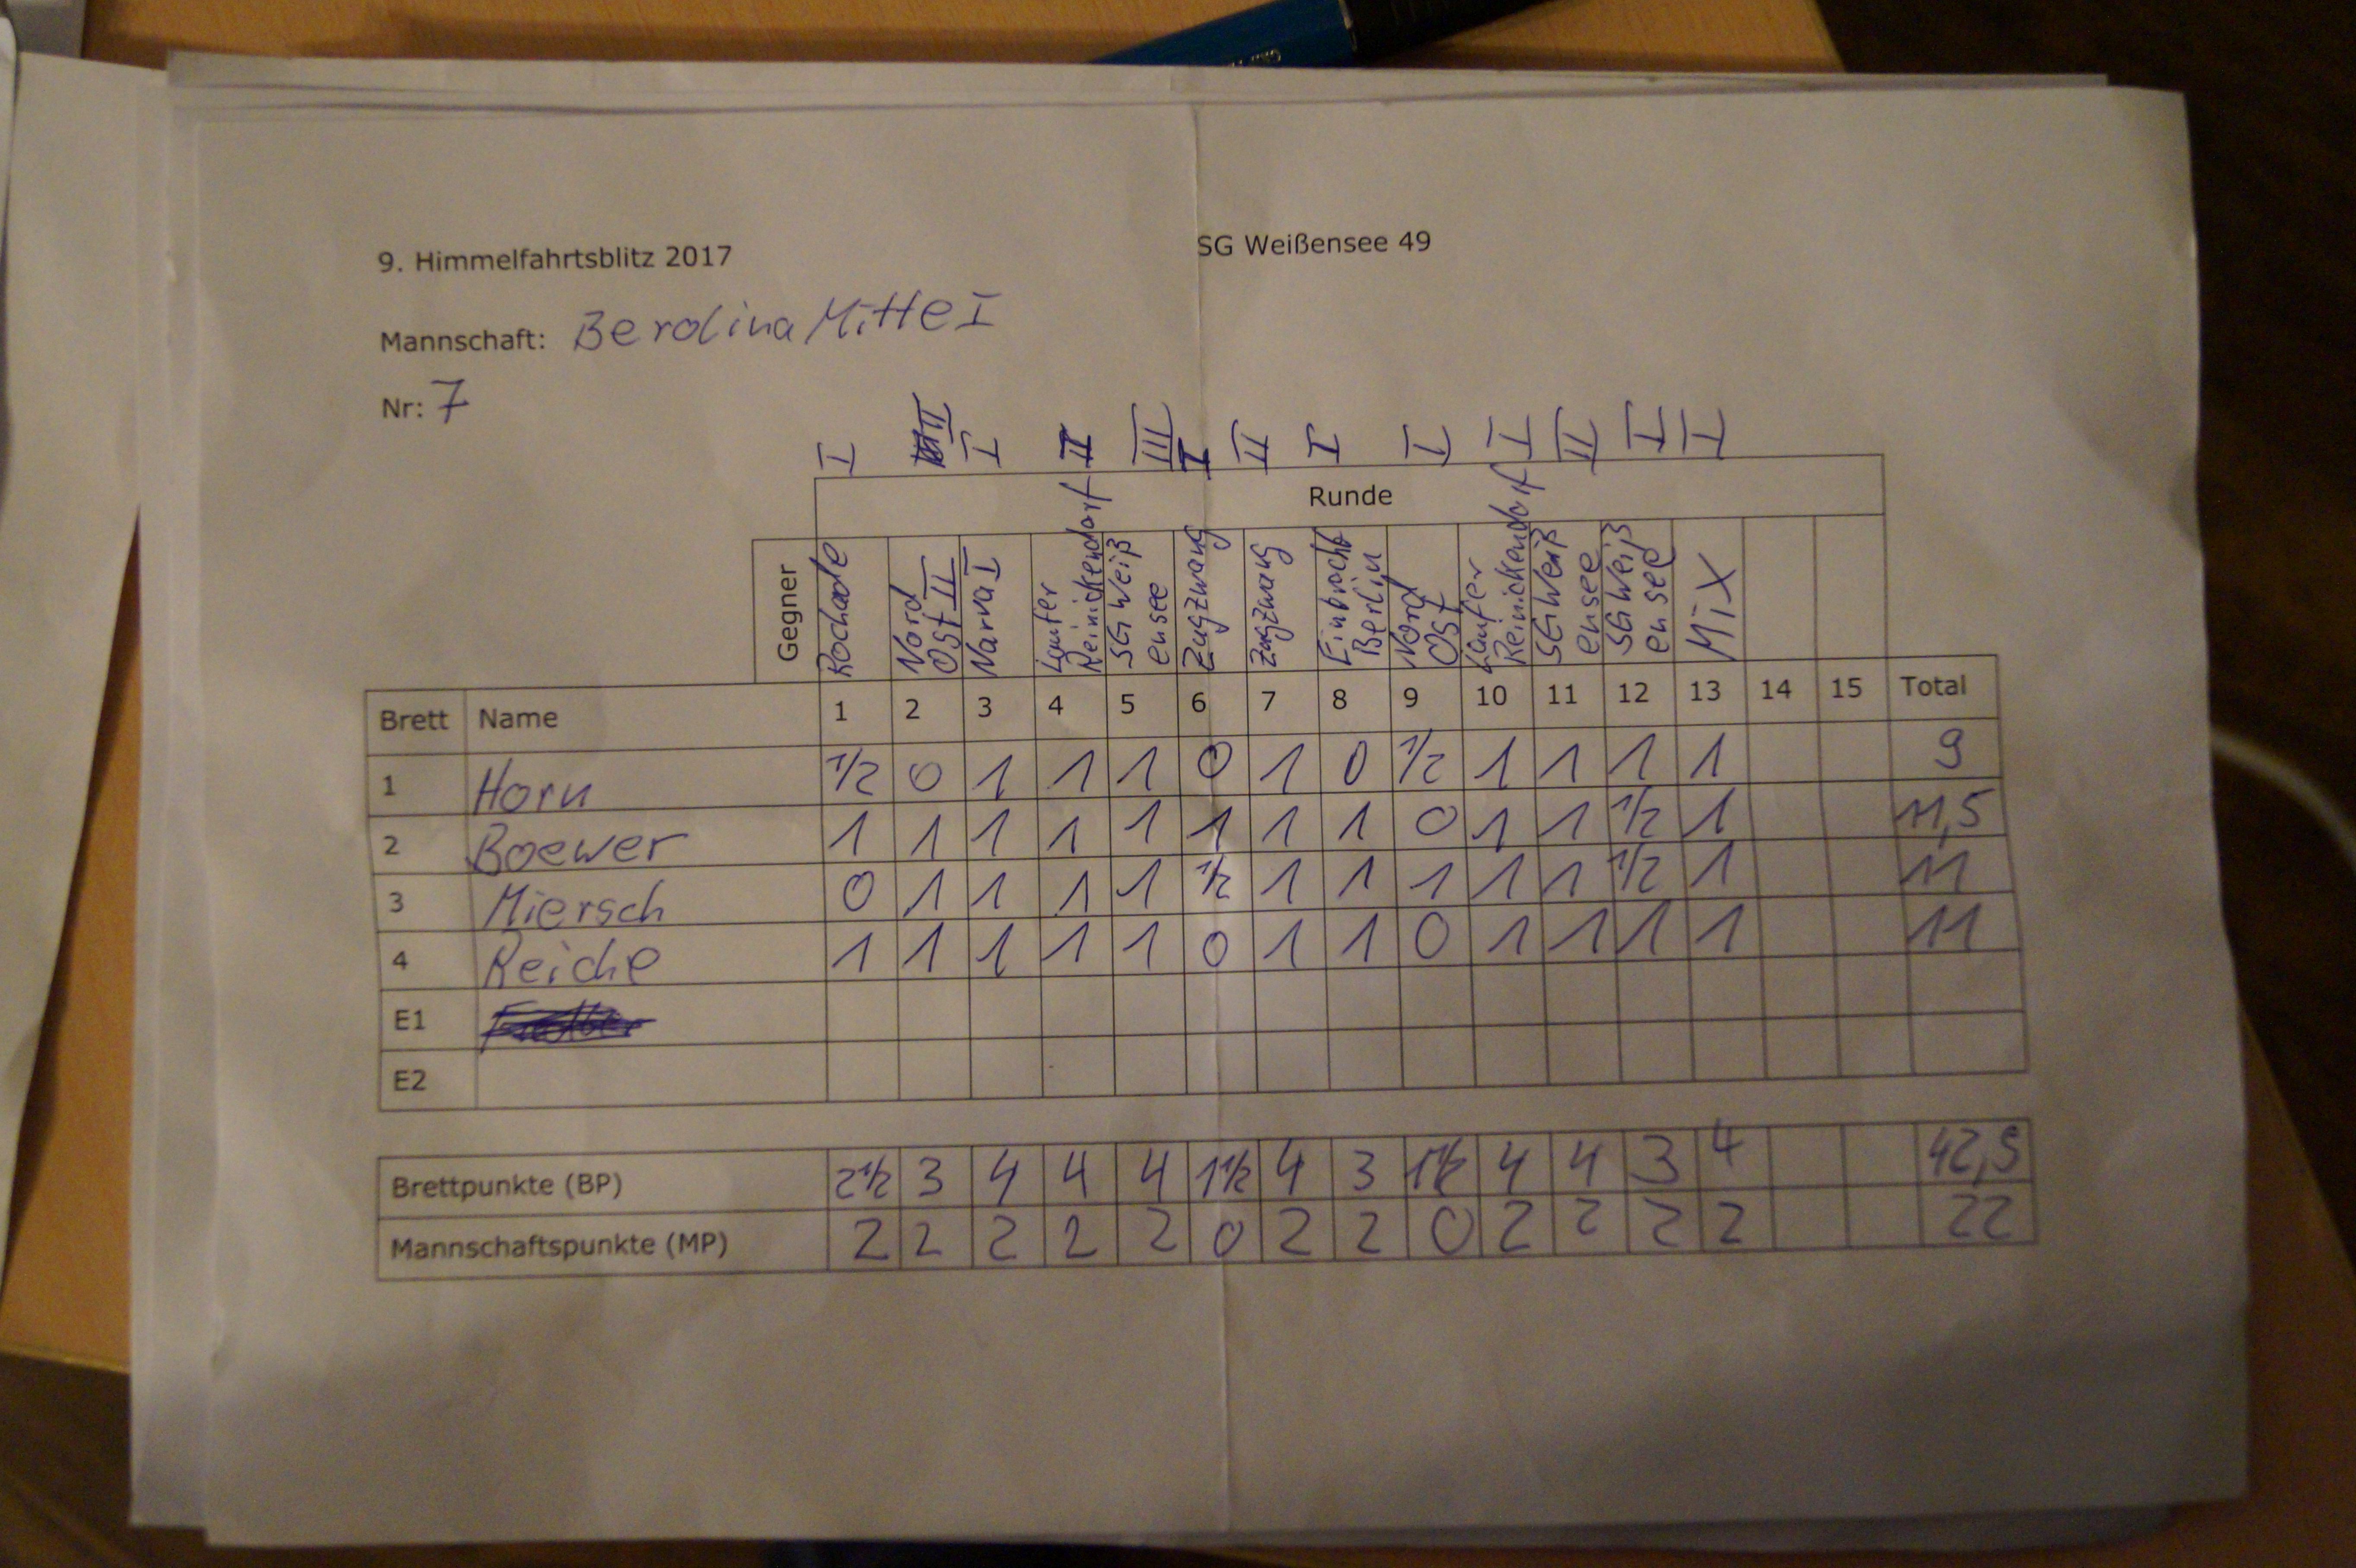 9. Himmelfahrtsblitz 2017 SG Weißensee 49
Mannschaft: Berolina Mitte I
Nr: 7
I II I II III I II I I I II I I
Runde
Gegner Rochade Nord Ost II Narva I Läufer Reinickendorf SG Weißensee Zugzwang Zugzwang Eintracht Berlin Nord Ost Läufer Reinickendorf SG Weißensee SG Weißensee Mix
Brett Name 1 2 3 4 5 6 7 8 9 10 11 12 13 14 15 Total
1 Horn 1/2 0 1 1 1 0 1 0 1/2 1 1 1 1 9
2 Boewer 1 1 1 1 1 1 1 1 0 1 1 1/2 1 11,5
3 Miersch 0 1 1 1 1 1/2 1 1 1 1 1 1/2 1 11
4 Reiche 1 1 1 1 1 0 1 1 0 1 1 1 1 11
E1
E2
Brettpunkte (BP) 2 1/2 3 4 4 4 1 1/2 4 3 1 1/2 4 4 3 4 42,5
Mannschaftspunkte (MP) 2 2 2 2 2 0 2 2 0 2 2 2 2 22